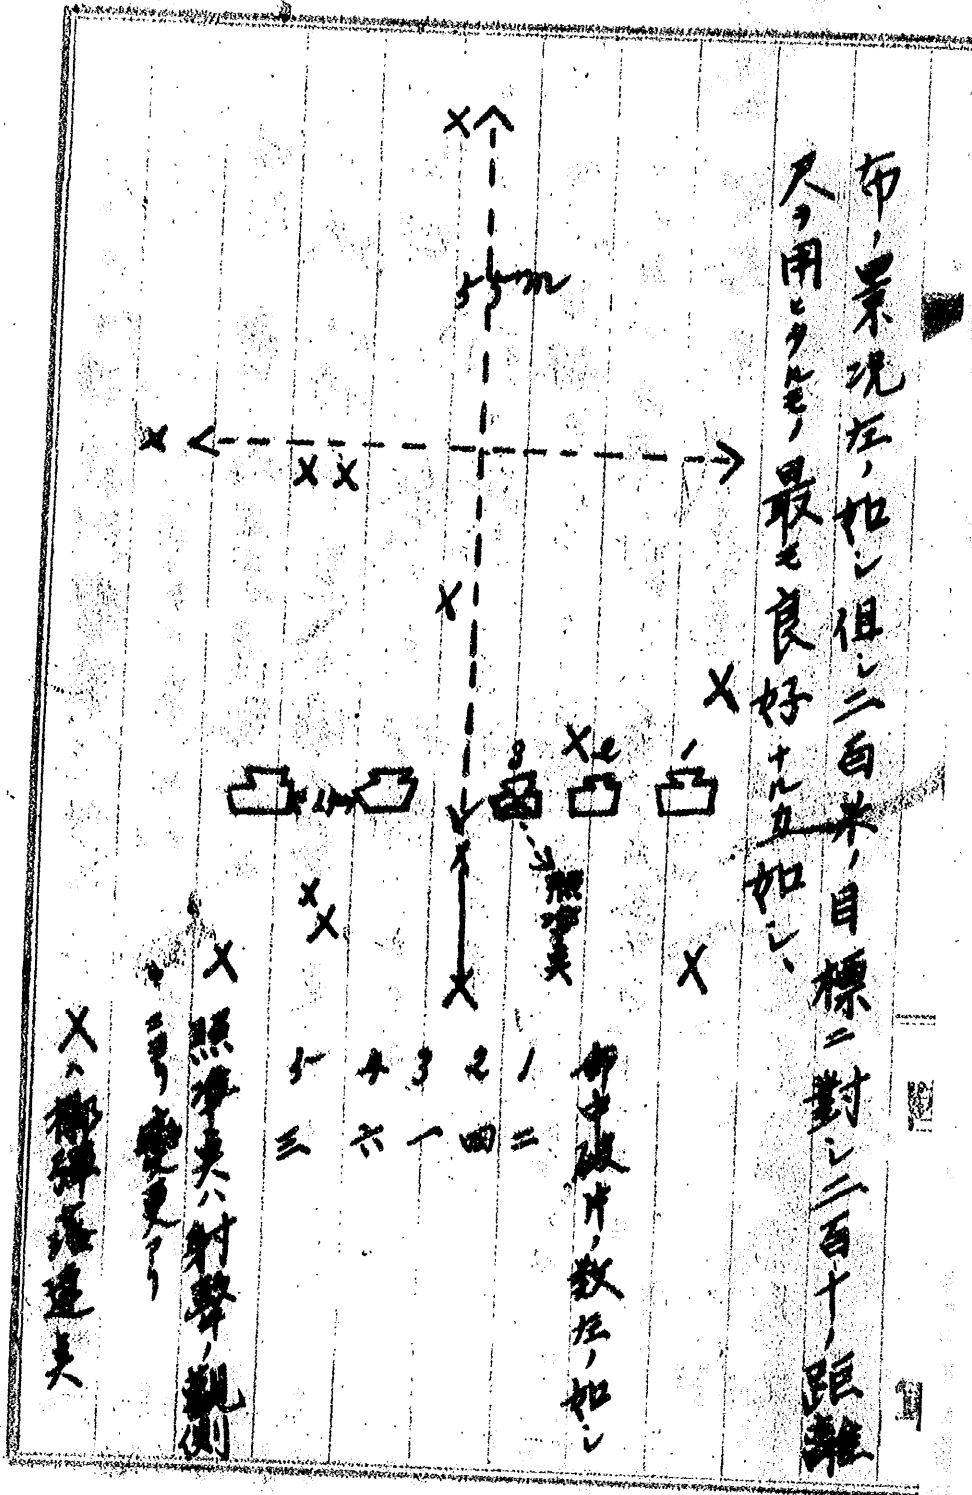 布ノ景況左ノ如シ但シ二百米ノ目標ニ對シ二百十ノ距離
尺ヲ用ヒタルモノ最モ良好ナルカ如シ、
55m
1
2
3
照準点
命中破片ノ数左ノ如シ
1 二
2 四
3 一
4 六
5 三
照準点ハ射撃ノ観側
ニヨリ変更アリ
Xハ榴弾落達点